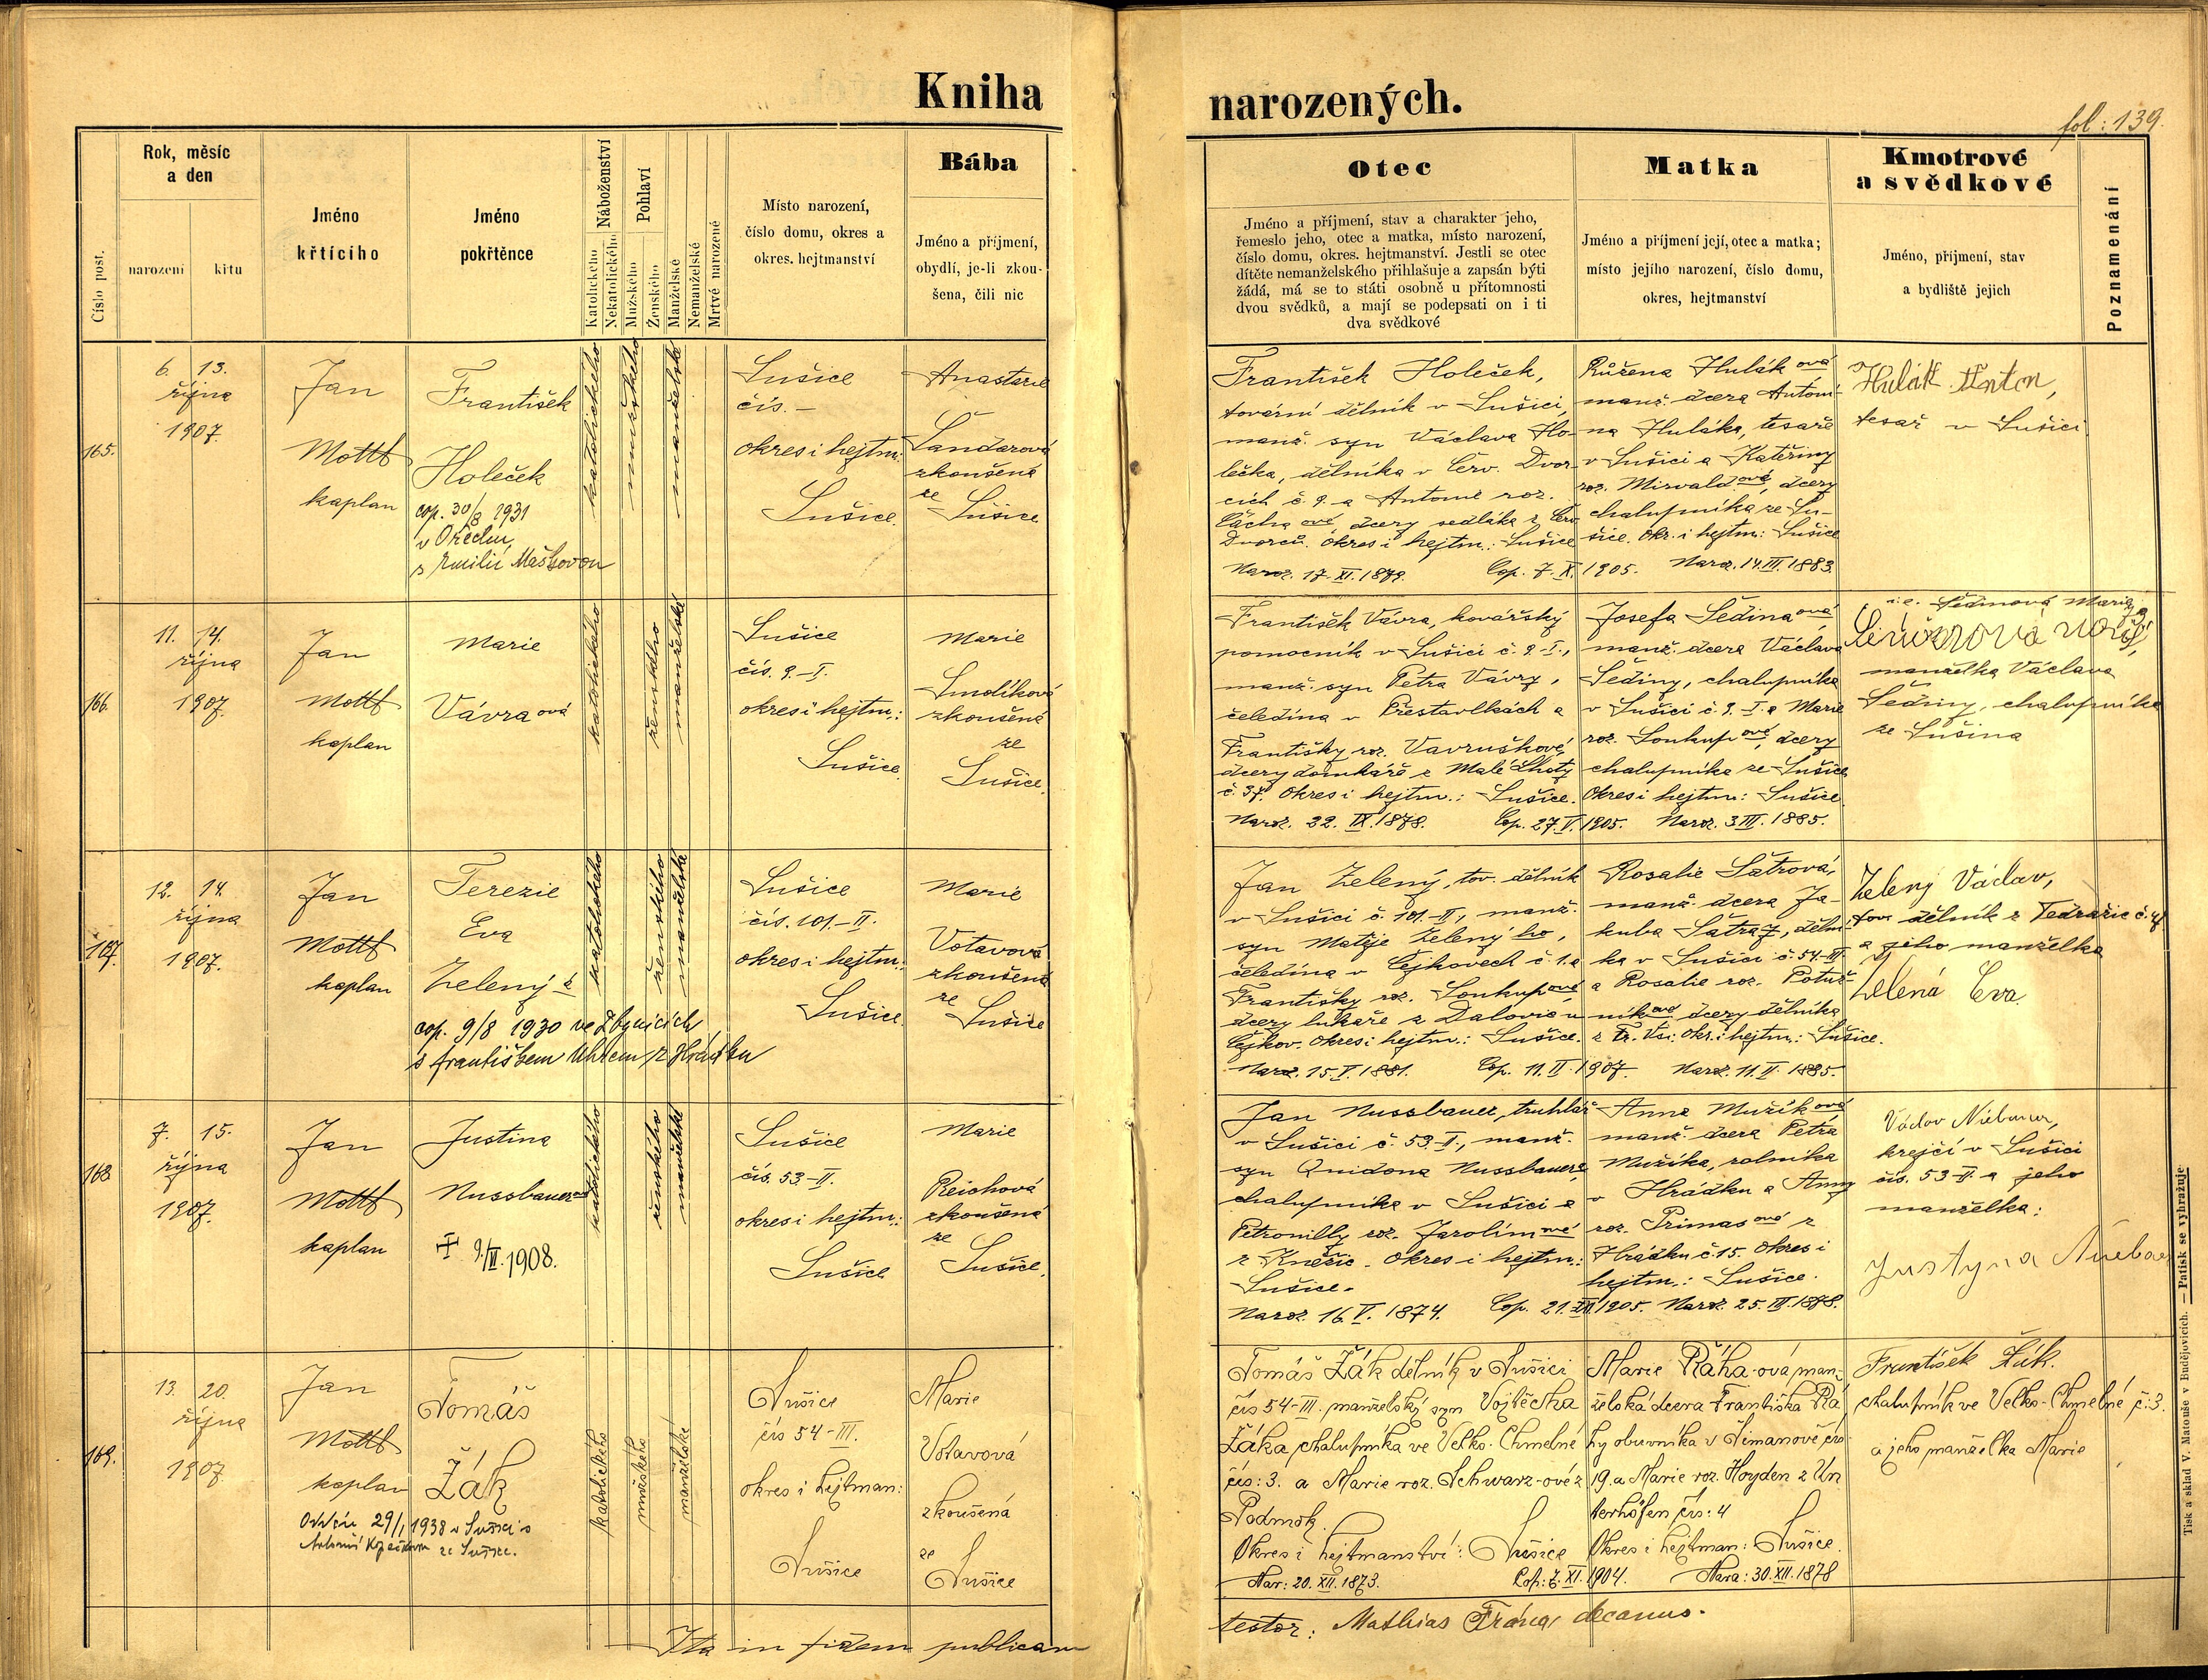 Kniha
narozených.
fol: 139.
Číslo post.
Rok, měsíc
a den
narození
kitu
Jméno
křtícího
Jméno
pokřtěnce
Náboženství
Katolického
Nekatolického
Pohlaví
Mužského
Ženského
Manželské
Nemanželské
Mrtvé narozené
Místo narození,
číslo domu, okres a
okres. hejtmanství
Bába
Jméno a příjmení,
obydlí, je-li zkou-
šena, čili nic
Otec
Jméno a příjmení, stav a charakter jeho,
řemeslo jeho, otec a matka, místo narození,
číslo domu, okres. hejtmanství. Jestli se otec
dítěte nemanželského přihlašuje a zapsán býti
žádá, má se to státi osobně u přítomnosti
dvou svědků, a mají se podepsati on i ti
dva svědkové
Matka
Jméno a příjmení její, otec a matka;
místo jejího narození, číslo domu,
okres, hejtmanství
Kmotrové
a svědkové
Jméno, příjmení, stav
a bydliště jejich
Poznamenání
165.
6. 13.
října
1907.
Jan
Mottl
kaplan
František
Holeček
cop. 30/8 1931
v Ořechu
s Emilií Maškovou
katolického
mužského
manželské
Sušice
čís. —
okres i hejtm.:
Sušice.
Anastazie
Šandarová
zkoušená
ze
Sušice
František Holeček,
tovární dělník v Sušici,
manž. syn Václava Ho-
lečka, dělníka v Červ. Dvor-
cích č. 9. a Antonie roz.
Cácha ové, dcery sedláka z Červ.
Dvorců. Okres i hejtm.: Sušice
Naroz. 17. XI. 1879. Cop. 7. X. 1905.
Růžena Hulák ová
manž. dcera Antoní-
na Huláka, tesaře
v Sušici a Kateřiny
roz. Mirvald ové, dcery
chalupníka ze Su-
šice. Okr. i hejtm.: Sušice
Naroz. 14. III. 1883.
Hulák Anton,
tesař v Sušici
166.
11. 14.
října
1907.
Jan
Mottl
kaplan
Marie
Vávra ová
katolického
ženského
manželské
Sušice
čís. 9.-I.
okres i hejtm.:
Sušice.
Marie
Smolíková
zkoušená
ze
Sušice.
František Vávra, kovářský
pomocník v Sušici č. 9.-I.,
manž. syn Petra Vávry,
čeledína v Přestavlkách a
Františky roz. Vavruškové,
dcery domkáře z Malé Lhoty
č. 37. Okres i hejtm.: Sušice.
Naroz. 22. IX. 1878. Cop. 27. V. 1905.
Josefa Šedina ová
manž. dcera Václava
Šediny, chalupníka
v Sušici č. 9.-I. a Marie
roz. Soukup ové, dcery
chalupníka ze Sušice
Okres i hejtm.: Sušice
Naroz. 3. III. 1885.
i.e. Šedinová Marie,
manželka Václava
Šediny, chalupníka
ze Sušice
167.
12. 14.
října
1907.
Jan
Mottl
kaplan
Terezie
Eva
Zelený á
cop. 9/8 1930 ve Zbynicích
s Františkem Uhlem z Hrádku
katolického
ženského
manželské
Sušice
čís. 101.-II.
okres i hejtm.:
Sušice.
Marie
Votavová
zkoušená
ze
Sušice
Jan Zelený, tov. dělník
v Sušici č. 101.-II., manž.
syn Matěje Zelený ho,
čeledína v Čejkovech č. 1. a
Františky roz. Soukup ové,
dcery lukaře z Dalovic u
Čejkov. Okres i hejtm.: Sušice.
Naroz. 15. V. 1881. Cop. 11. II. 1907.
Rosalie Šatrová,
manž. dcera Ja-
kuba Šatra, dělní-
ka v Sušici č. 54.-III.
a Rosalie roz. Potuž-
nik ové dcery dělníka
Okr. i hejtm.: Sušice.
Naroz. 11. II. 1885.
Zelený Václav,
tov. dělník z Tedražic
a jeho manželka
Zelená Eva.
168.
7. 15.
října
1907.
Jan
Mottl
kaplan
Justina
Nussbauer ová
✝ 9./III. 1908.
katolického
ženského
manželské
Sušice
čís. 53-II.
okres i hejtm.:
Sušice
Marie
Reichová
zkoušená
ze
Sušice.
Jan Nussbauer, truhlář
v Sušici č. 53-II., manž.
syn Quidona Nussbauera,
chalupníka v Sušici a
Petronilly roz. Jarolím ové
z Kněžic. Okres i hejtm.:
Sušice.
Naroz. 16. V. 1874. Cop. 21. XI. 1905.
Anna Mužík ová
manž. dcera Petra
Mužíka, rolníka
v Hrádku a Anny
roz. Primas ové z
Hrádku č. 15. Okres i
hejtm.: Sušice.
Naroz. 25. III. 1878.
krejčí v Sušici
čís. 53-II. a jeho
manželka:
Justyna
169.
13. 20.
října
1907
Jan
Mottl
kaplan
Tomáš
Žák
Oddán 29/1 1938 v Sušici s
ze Sušice.
katolického
mužského
manželské
Sušice
čís 54-III.
okres i hejtman:
Sušice
Marie
Votavová
zkoušená
ze
Sušice
Tomáš Žák dělník v Sušici
čís 54-III. manželský syn Vojtěcha
Žáka chalupníka ve Velko-Chmelné
čís: 3. a Marie roz. Schwarz-ové z
Podmok.
Okres i hejtmanství: Sušice
Nar: 20. XII. 1873. Cop: 7. XI. 1904.
Marie Ráha-ová man-
želská dcera Františka Rá
hy obuvníka v Šimanově čís
19. a Marie roz. Hoyden z Un
terhöfen čís: 4
Okres i hejtman: Sušice.
Naro: 30. XII. 1878
František Žák.
chalupník ve Velko-Chmelné č: 3.
a jeho manželka Marie
Ita in fidem publicam
testor: Mathias Frána, decanus.
Tisk a sklad V. Matouše v Budějovicích. — Patisk se vyhražuje